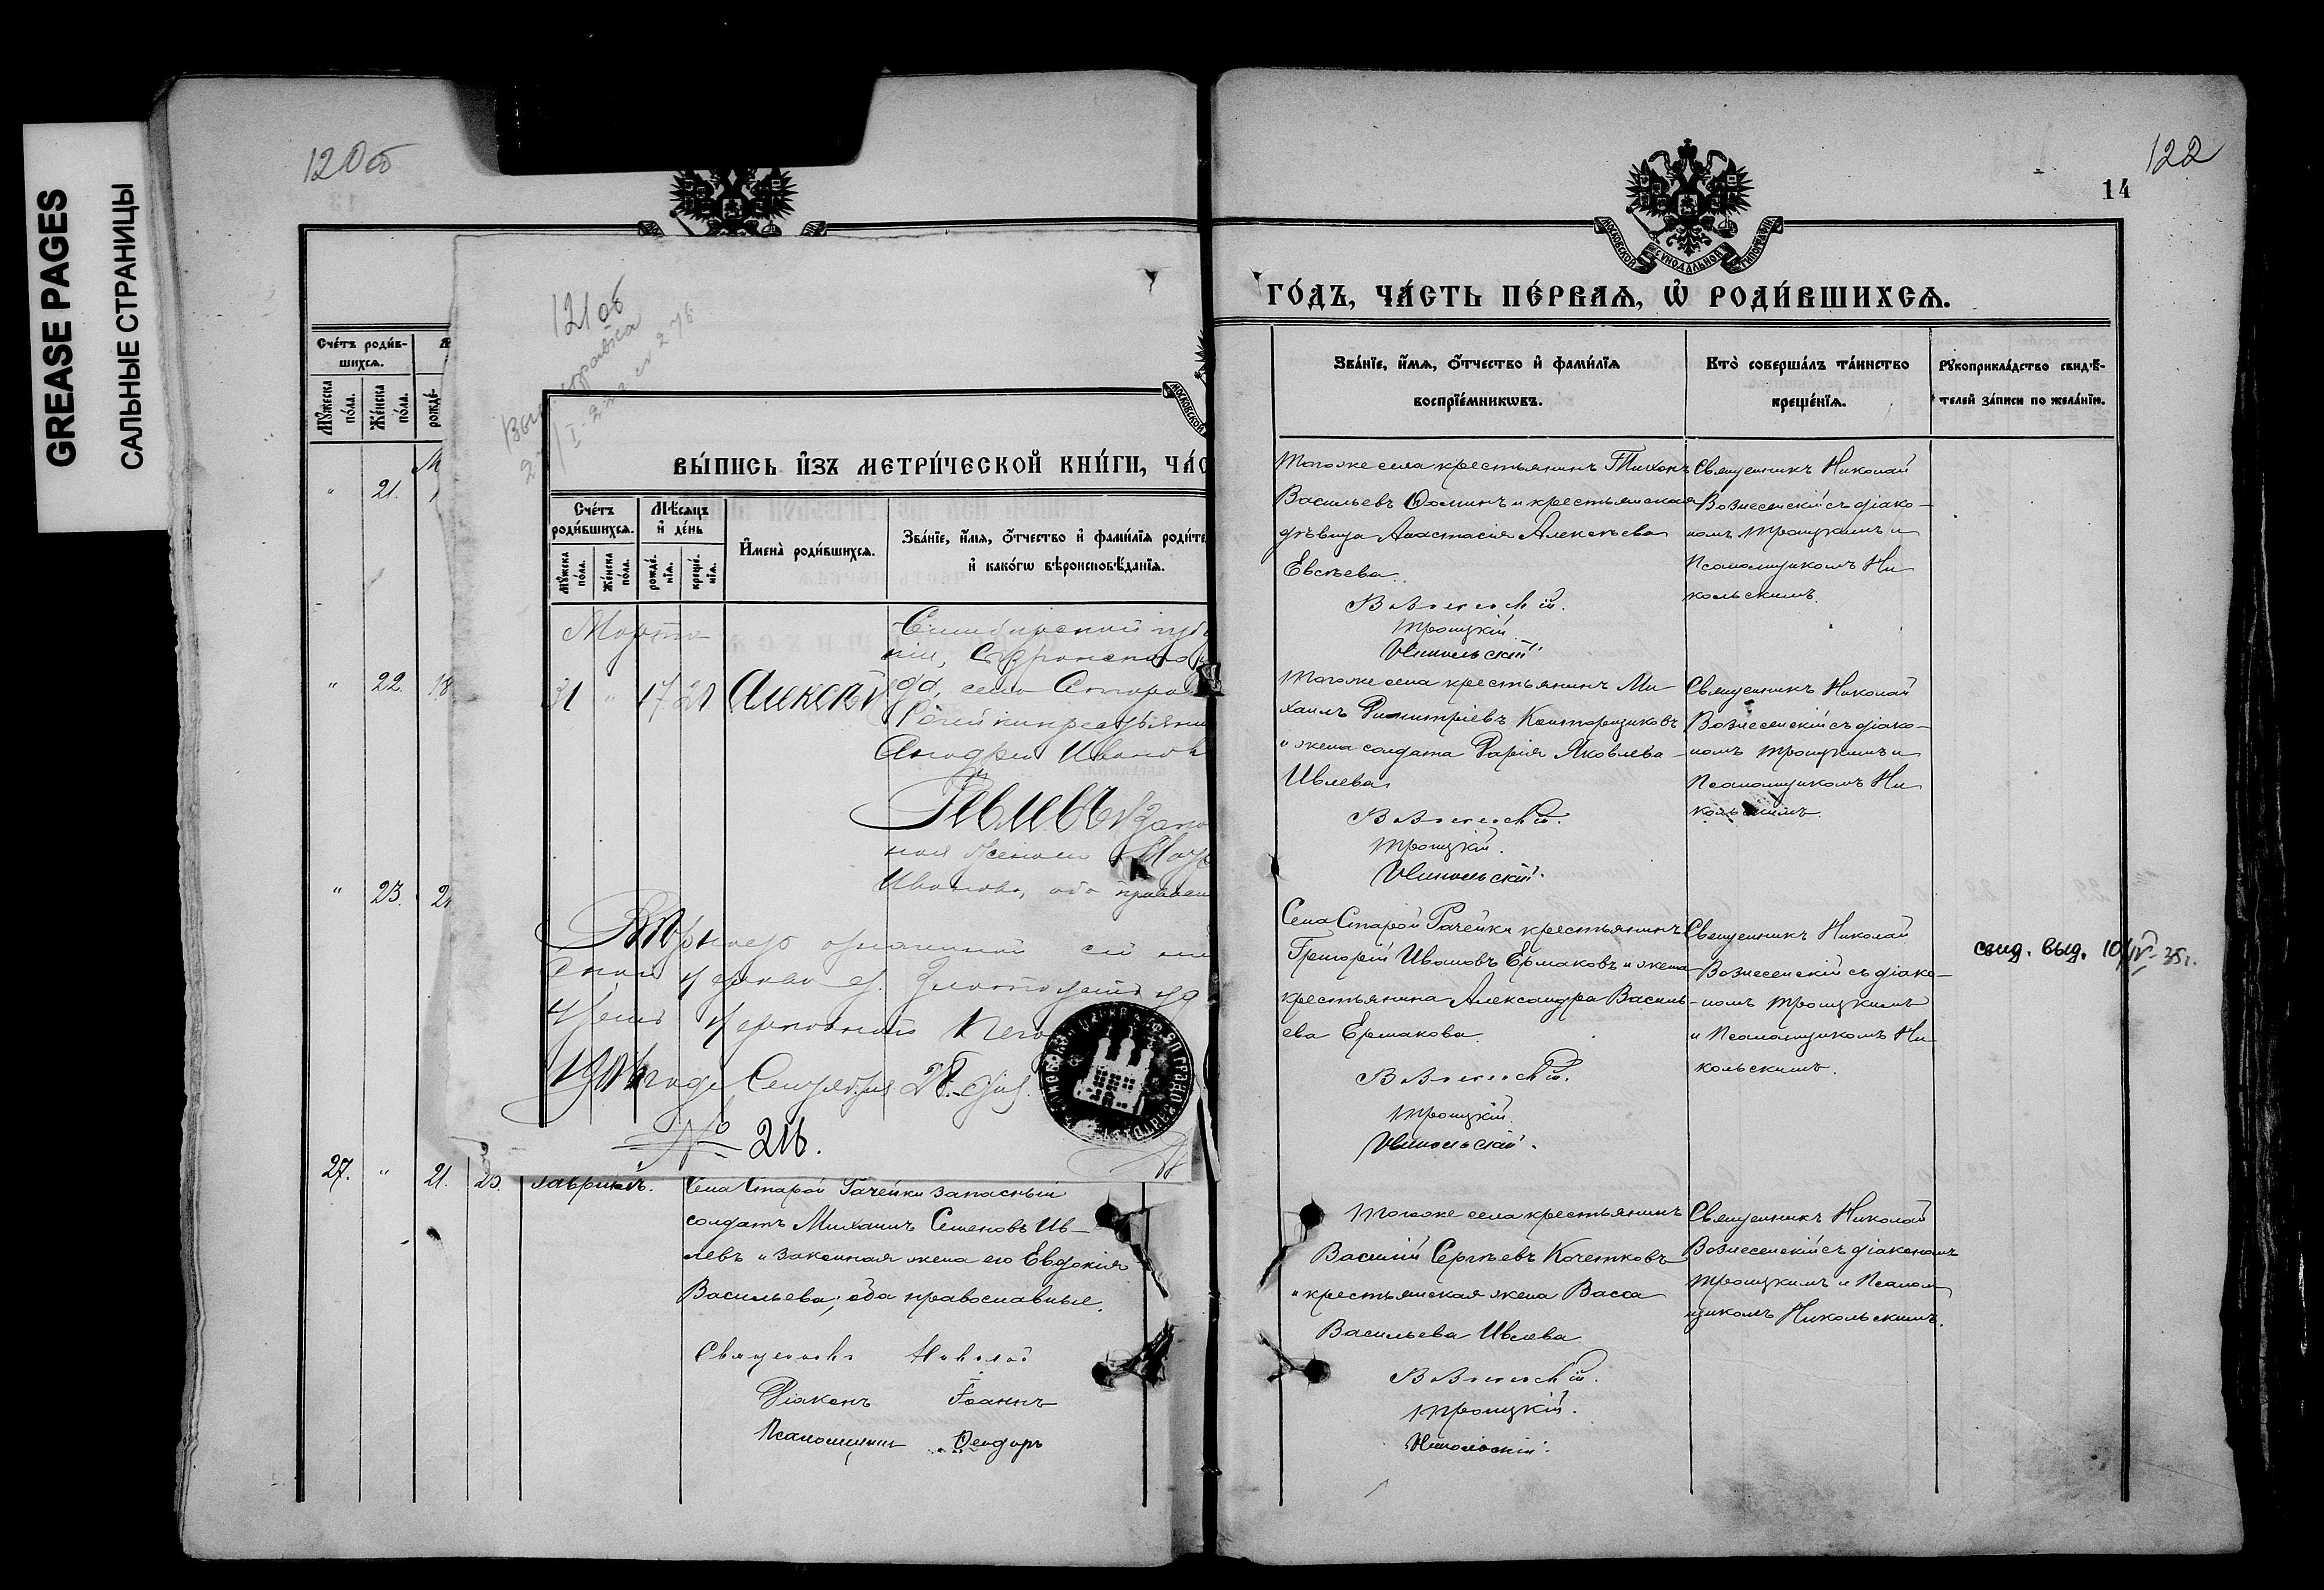 GREASE PAGES
САЛЬНЫЕ СТРАНИЦЫ
120об
Счéтъ роди́в-
шихсѧ.
Мꙋ́жеска
по́ла.
Же́нска
по́ла.
рожде́-
" 21.
" 22. 18
" 23.
121об
Вы́пись и҆зъ метри́ческой кни́ги, ча́с
Счéтъ
роди́вшихсѧ.
Мѣ́сѧцъ
и҆ де́нь
Мꙋ́жеска
по́ла.
Же́нска
по́ла.
рожде́-
нїѧ.
креще́-
нїѧ.
И҆мена̀ роди́вшихсѧ.
Зва́нїе, и҆́мѧ, ѻ҆́тчество и҆ фами́лїѧ роди́те
и҆ како́гѡ вѣроисповѣ́данїѧ.
Марта
Симбирской губ
нiи, Сызранскаго
31 " 17 21 Алексѣй
да, села Старой
Рачейки крестьянин
Андрей Иванов
Ивлевъ и зако
ная жена
Иванова, оба православн
1914 года Сентября
№ 216.
27. " 21. 23. Гаврiилъ. Села Старой Рачейки запасный
солдатъ Михаилъ Семеновъ Ив-
левъ и законная жена его Евдокiя
Васильева; оба православные.
Священникъ Николай
Дiаконъ Іоаннъ
Псаломщикъ Ѳеодоръ
122
14
МОСКОВСКОЙ СѴНОДАЛЬНОЙ ТИПОГРАФІИ
го́дъ, ча́сть пе́рваѧ, ѡ҆ роди́вшихсѧ.
Зва́нїе, и҆́мѧ, ѻ҆́тчество и҆ фами́лїѧ
воспрїе́мникѡвъ.
Кто̀ соверша́лъ та́инство
креще́нїѧ.
Рꙋкоприкла́дство свидѣ́-
телей за́писи по жела́нїю.
Того же села крестьянинъ Тихонъ
Васильевъ Ѳоминъ и крестьянская
дѣвица Анастасiя Алексѣева
Евсѣева.
Вознесенскiй.
Троицкiй
Никольскiй
Священникъ Николай
Вознесенскiй съ дiако-
номъ Троицкимъ и
Псаломщикомъ Ни
кольскимъ.
Того же села крестьянинъ Ми
хаилъ Димитрiевъ Конторщиковъ
и жена солдата Дарiя Яковлева
Ивлева
Вознесенскiй.
Троицкiй.
Никольскiй.
Священникъ Николай
Вознесенскiй съ дiако-
номъ Троицкимъ и
Псаломщикомъ Ни
кольскимъ.
Села Старой Рачейки крестьянинъ
Григорiй Ивановъ Ермаковъ и жена
крестьянина Александра Василь-
ева Ермакова.
Вознесенскiй.
Троицкiй.
Никольскiй.
Священникъ Николай
Вознесенскiй съ дiако-
номъ Троицкимъ
и Псаломщикомъ Ни
кольскимъ.
свид. выд. 10/IV-35г.
Того же села крестьянинъ
Василiй Сергѣевъ Кочетковъ
и крестьянская жена Васса
Васильева Ивлева
Вознесенскiй.
Троицкiй.
Никольскiй.
Священникъ Николай
Вознесенскiй съ дiакономъ
Троицкимъ и Псалом
щикомъ Никольскимъ.